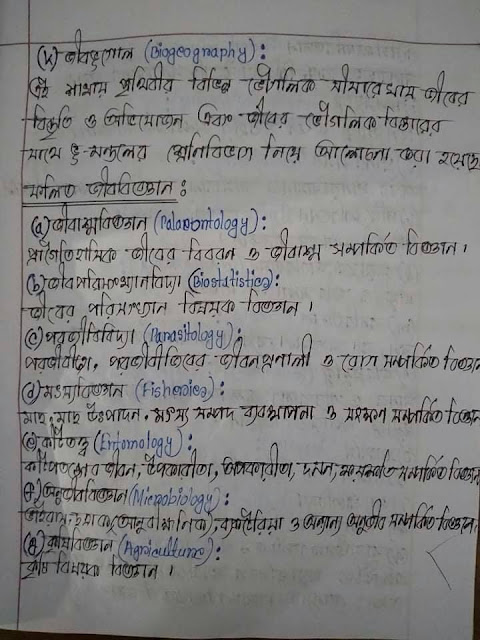 (k) জীবভূগোল (Biogeography):
এই শাখায় পৃথিবীর বিভিন্ন ভৌগলিক সীমারেখায় জীবের
বিস্তৃতি ও অভিযোজন এবং জীবের ভৌগলিক বিস্তারের
সাথে ভূ-মন্ডলের শ্রেনিবিভাগ নিয়ে আলোচনা করা হয়েছে
ফলিত জীববিজ্ঞান:
(a) জীবাশ্মবিজ্ঞান (Palaeontology):
প্রাগৈতিহাসিক জীবের বিবরন ও জীবাশ্ম সম্পর্কিত বিজ্ঞান।
(b) জীবপরিসংখ্যানবিদ্যা (Biostatistics):
জীবের পরিসংখ্যান বিষয়ক বিজ্ঞান।
(c) পরজীবিবিদ্যা (Parasitology):
পরজীবিতা, পরজীবীজীবের জীবনপ্রণালী ও রোগ সম্পর্কিত বিজ্ঞান
(d) মৎস্যবিজ্ঞান (Fisheries):
মাছ, মাছ উৎপাদন, মৎস্য সম্পদ ব্যবস্থাপনা ও সংরক্ষণ সম্পর্কিত বিজ্ঞান
(e) কীটতত্ত্ব (Entomology):
কীটপতঙ্গের জীবন, উপকারীতা, অপকারীতা, দমন, সম্পর্কিত বিজ্ঞান
(f) অনুজীববিজ্ঞান (Microbiology):
ভাইরাস, ব্যাকটেরিয়া ও অন্যান্য অনুজীব সম্পর্কিত বিজ্ঞান,
(g) কৃষিবিজ্ঞান (Agriculture):
কৃষি বিষয়ক বিজ্ঞান।